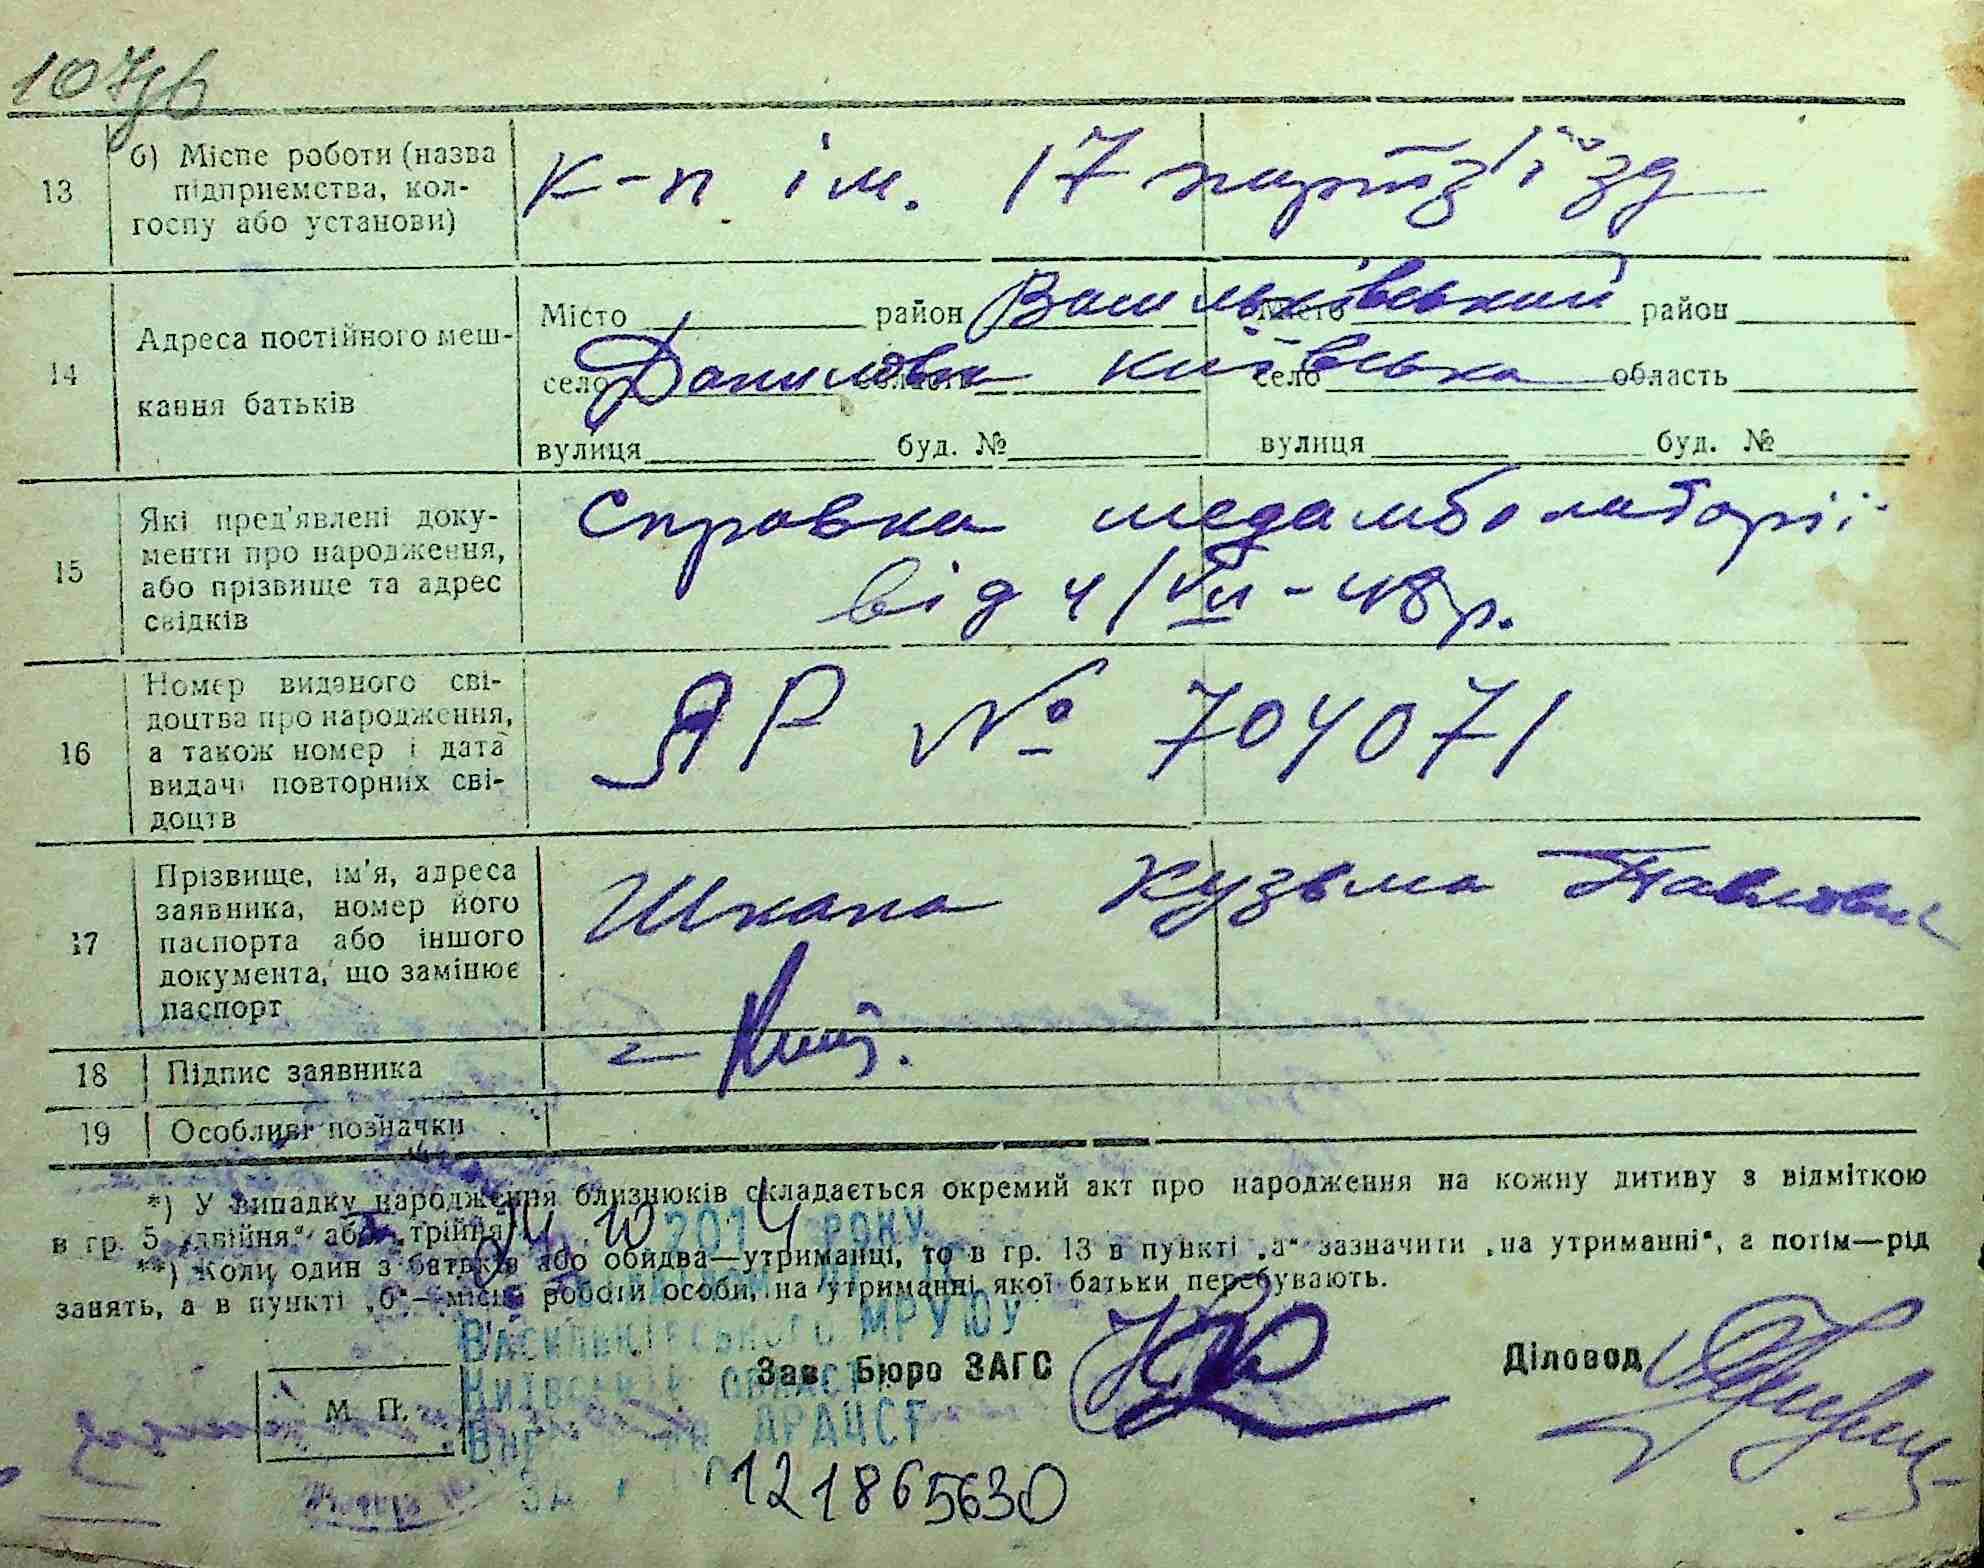 107зв
13 б) Місце роботи (назва
підприємства, кол-
госпу або установи)
к-п ім. 17 партз'їзд
14 Адреса постійного меш-
кання батьків
Місто район Васильківський Місто район
село Данилівка область Київська село область
вулиця буд. № вулиця буд. №
15 Які пред'явлені доку-
менти про народження,
або прізвище та адрес
свідків
Справка медамболаторії
від 4/VII-48р.
16 Номер виданого сві-
доцтва про народження,
а також номер і дата
видачі повторних сві-
доцтв
ЯР № 704071
17 Прізвище, ім'я, адреса
заявника, номер його
паспорта або іншого
документа, що замінює
паспорт
Шкапа Кузьма Павлович
18 Підпис заявника
19 Особливі позначки
*) У випадку народження близнюків складається окремий акт про народження на кожну дитину з відміткою
в гр. 5 „двійня" або „трійня"
**) Коли один з батьків або обидва—утриманці, то в гр. 13 в пункті „а" зазначити „на утриманні", а потім—рід
занять, а в пункті „б"—місце роботи особи, на утриманні якої батьки перебувають.
10 2014 РОКУ
ВАСИЛЬКІВСЬКОГО МРУЮ
КИЇВСЬКІЙ ОБЛАСТІ
ДРАЦСГ
ЗА
121865630
М. П.
Зав. Бюро ЗАГС
Діловод